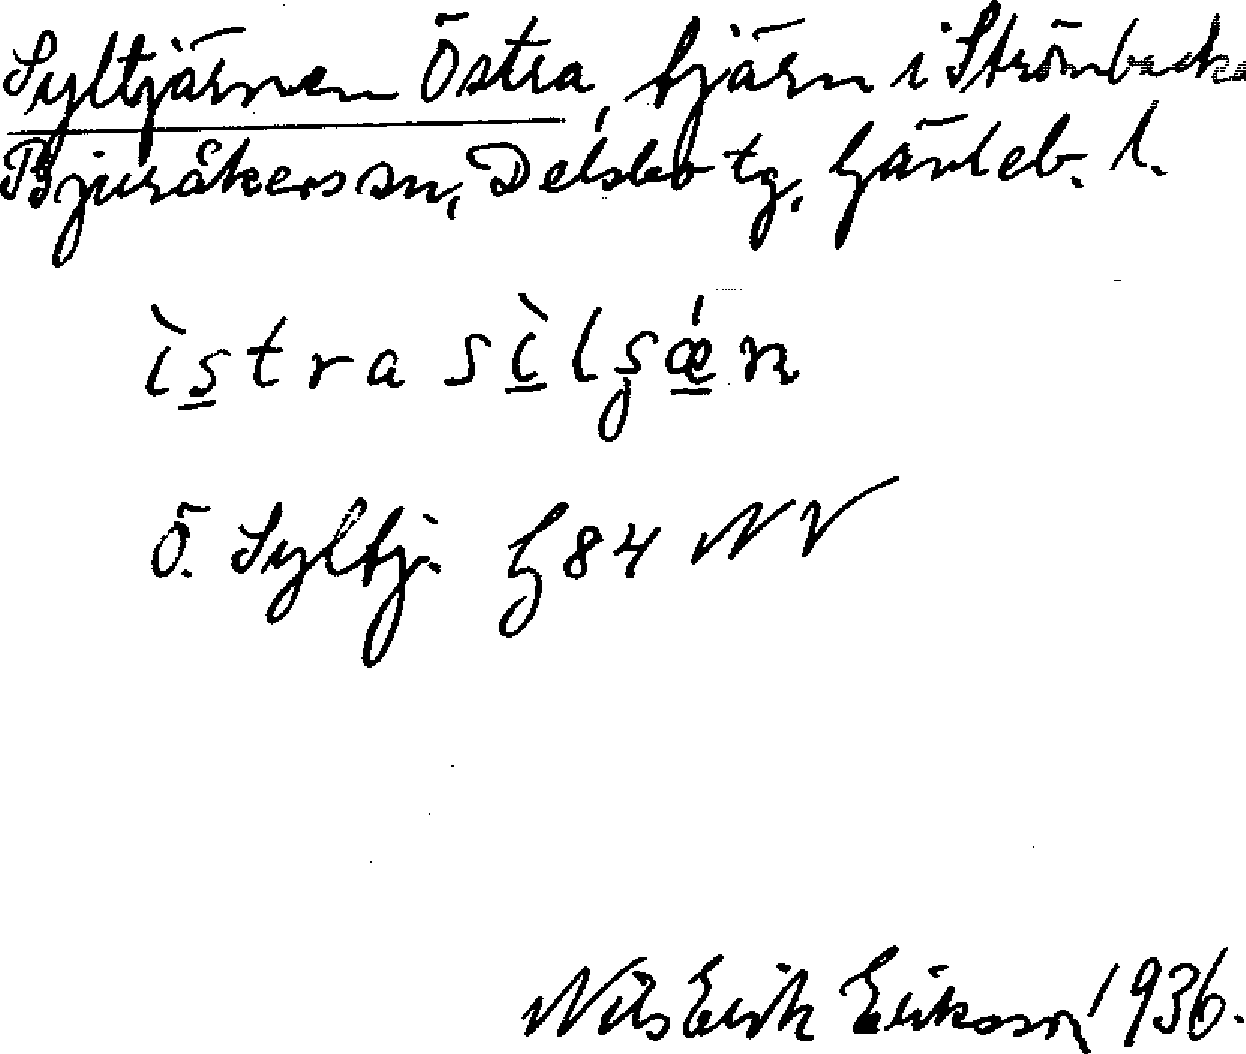 Syltjärnen Östra, tjärn i Strömbacka
Bjuråkers sn, Delsbo tg, Gävleb. l.
Ö. Syltj. G84 NV
Nils Erik Eriksson 1936.